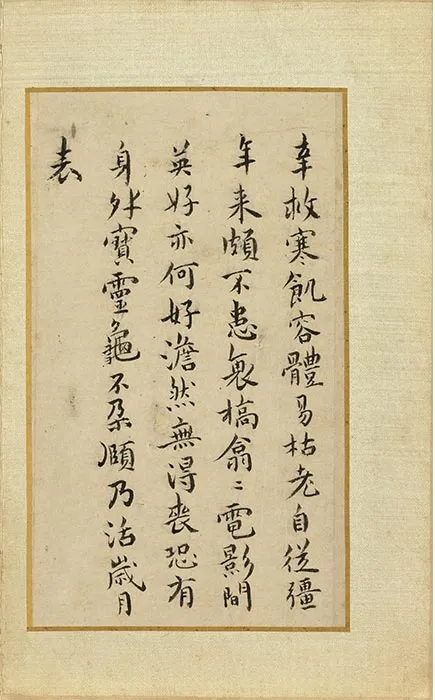 幸救寒飢容體易枯老自從彊
年来頗不患衰槁翕〻電影間
英好亦何好澹然無得喪恐有
身外寶靈龜不朶頤乃活歲月
表